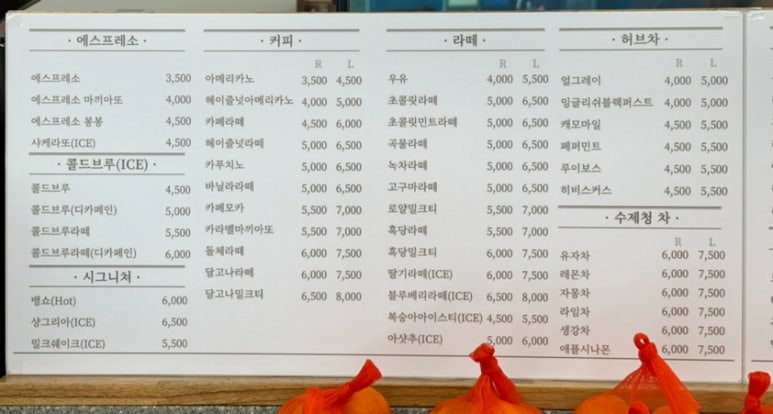 · 에스프레소 ·
에스프레소 3,500
에스프레소 마끼아또 4,000
에스프레소 봉봉 4,500
샤케라또(ICE) 4,500
· 콜드브루(ICE) ·
콜드브루 4,500
콜드브루(디카페인) 5,000
콜드브루라떼 5,500
콜드브루라떼(디카페인) 6,000
· 시그니쳐 ·
뱅쇼(Hot) 6,000
샹그리아(ICE) 6,500
밀크쉐이크(ICE) 5,500
· 커피 ·
R L
아메리카노 3,500 4,500
헤이즐넛아메리카노 4,000 5,000
카페라떼 4,500 6,000
헤이즐넛라떼 5,000 6,500
카푸치노 5,000 6,500
바닐라라떼 5,000 6,500
카페모카 5,500 7,000
카라멜마끼아또 5,500 7,000
돌체라떼 6,000 7,500
달고나라떼 6,000 7,500
달고나밀크티 6,500 8,000
· 라떼 ·
R L
우유 4,000 5,500
초콜릿라떼 5,000 6,500
초콜릿민트라떼 5,000 6,500
곡물라떼 5,000 6,500
녹차라떼 5,000 6,500
고구마라떼 5,000 6,500
로얄밀크티 5,500 7,000
흑당라떼 5,500 7,000
흑당밀크티 6,000 7,500
딸기라떼(ICE) 6,000 7,500
블루베리라떼(ICE) 6,500 8,000
복숭아아이스티(ICE) 4,500 5,500
아샷추(ICE) 5,000 6,000
· 허브차 ·
R L
얼그레이 4,000 5,000
잉글리쉬블랙퍼스트 4,000 5,000
캐모마일 4,500 5,500
페퍼민트 4,500 5,500
루이보스 4,500 5,500
히비스커스 4,500 5,500
· 수제청 차 ·
R L
유자차 6,000 7,500
레몬차 6,000 7,500
자몽차 6,000 7,500
라임차 6,000 7,500
생강차 6,000 7,500
애플시나몬 6,000 7,500